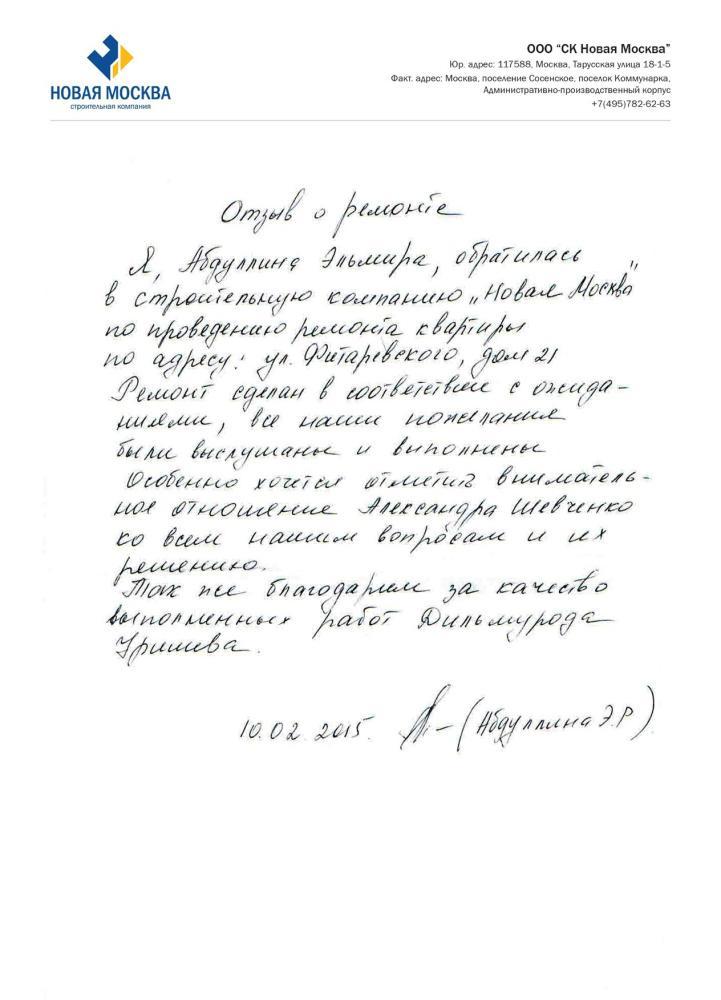 НОВАЯ МОСКВА
строительная компания
ООО “СК Новая Москва”
Юр. адрес: 117588, Москва, Тарусская улица 18-1-5
Факт. адрес: Москва, поселение Сосенское, поселок Коммунарка,
Административно-производственный корпус
+7(495)782-62-63
Отзыв о ремонте
Я, Абдуллина Эльмира, обратилась
в строительную компанию „Новая Москва"
по проведению ремонта квартиры
по адресу: ул. Фитаревского, дом 21
Ремонт сделан в соответствие с ожида-
ниями, все наши пожелания
были выслушаны и выполнены
Особенно хочется отметить вниматель-
ное отношение Александра Шевченко
ко всем нашим вопросам и их
решению.
Так же благодарим за качество
выполненных работ Дильмурода
Уришева.
10.02.2015. (Абдуллина Э.Р)